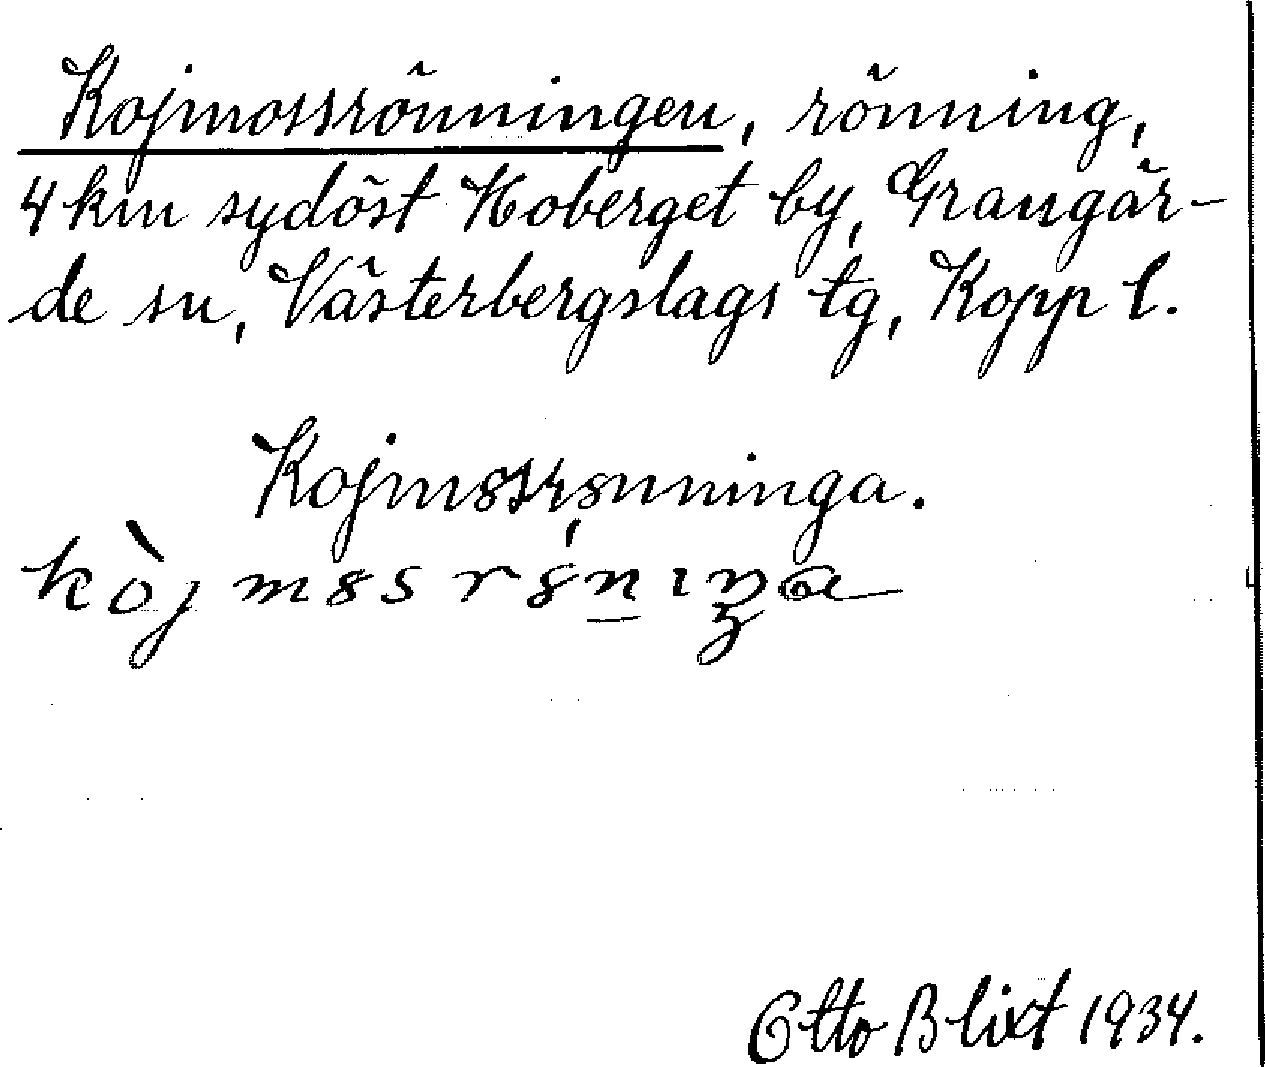 Kojmossrönningen, rönning,
4 km sydöst Hoberget by, Grangär-
de sn, Västerbergslags tg, Kopp l.
Kojmssrsnninga.
kòjmssrsnıŋa
Otto Blixt 1934.